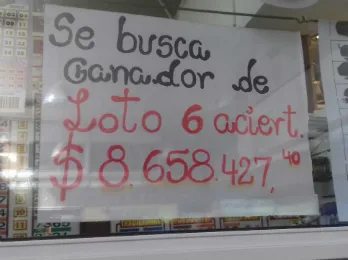 Se busca
Ganador de
Loto 6 aciert.
$ 8.658.427,40